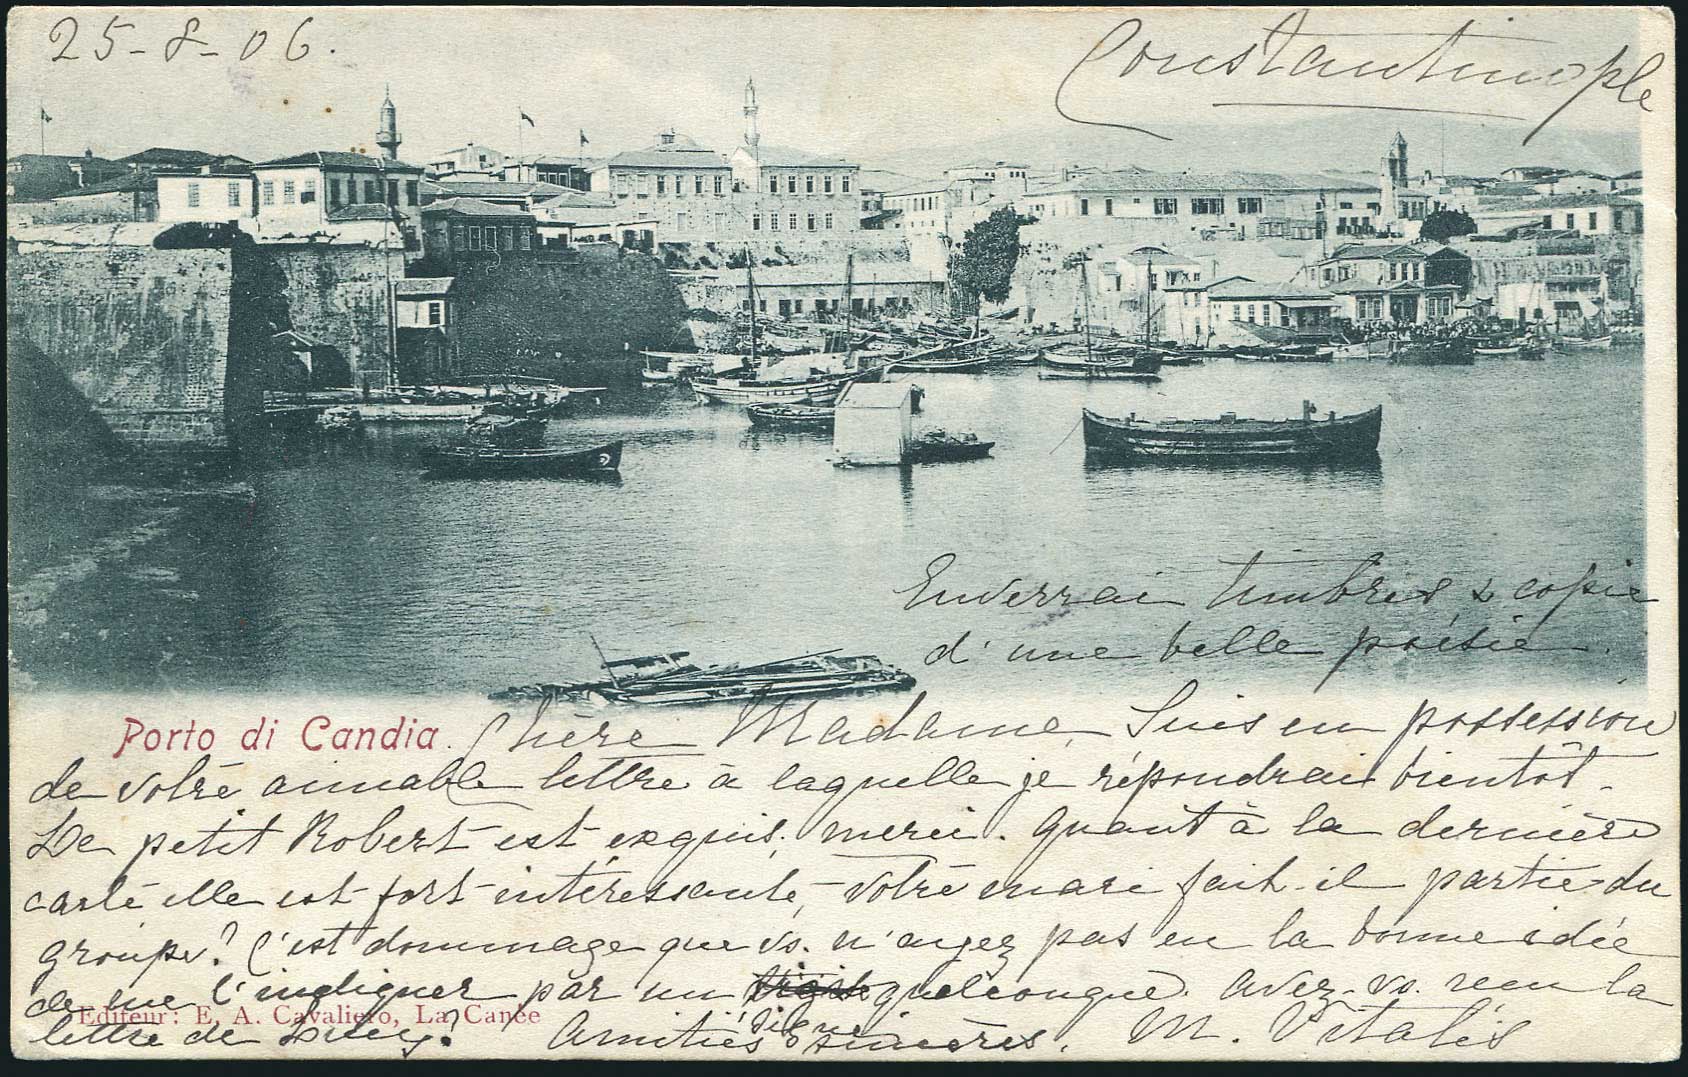 25-8-06.
Constantinople
Enverrai timbres & copie
d'une belle poésie.
Porto di Candia.
Chère Madame, Suis en possession
de votre aimable lettre à laquelle je répondrai bientôt.
Le petit Robert est exquis. merci. Quant à la dernière
carte elle est fort intéressante, votre mari fait-il partie du
groupe? C'est dommage que vs. n'ayez pas eu la bonne idée
de me l'indiquer par un quelconque. Avez-vs. reçu la
signe
Editeur: E. A. Cavaliero, La Canée
lettre de ? Amitiés sincères. M. Vitalis